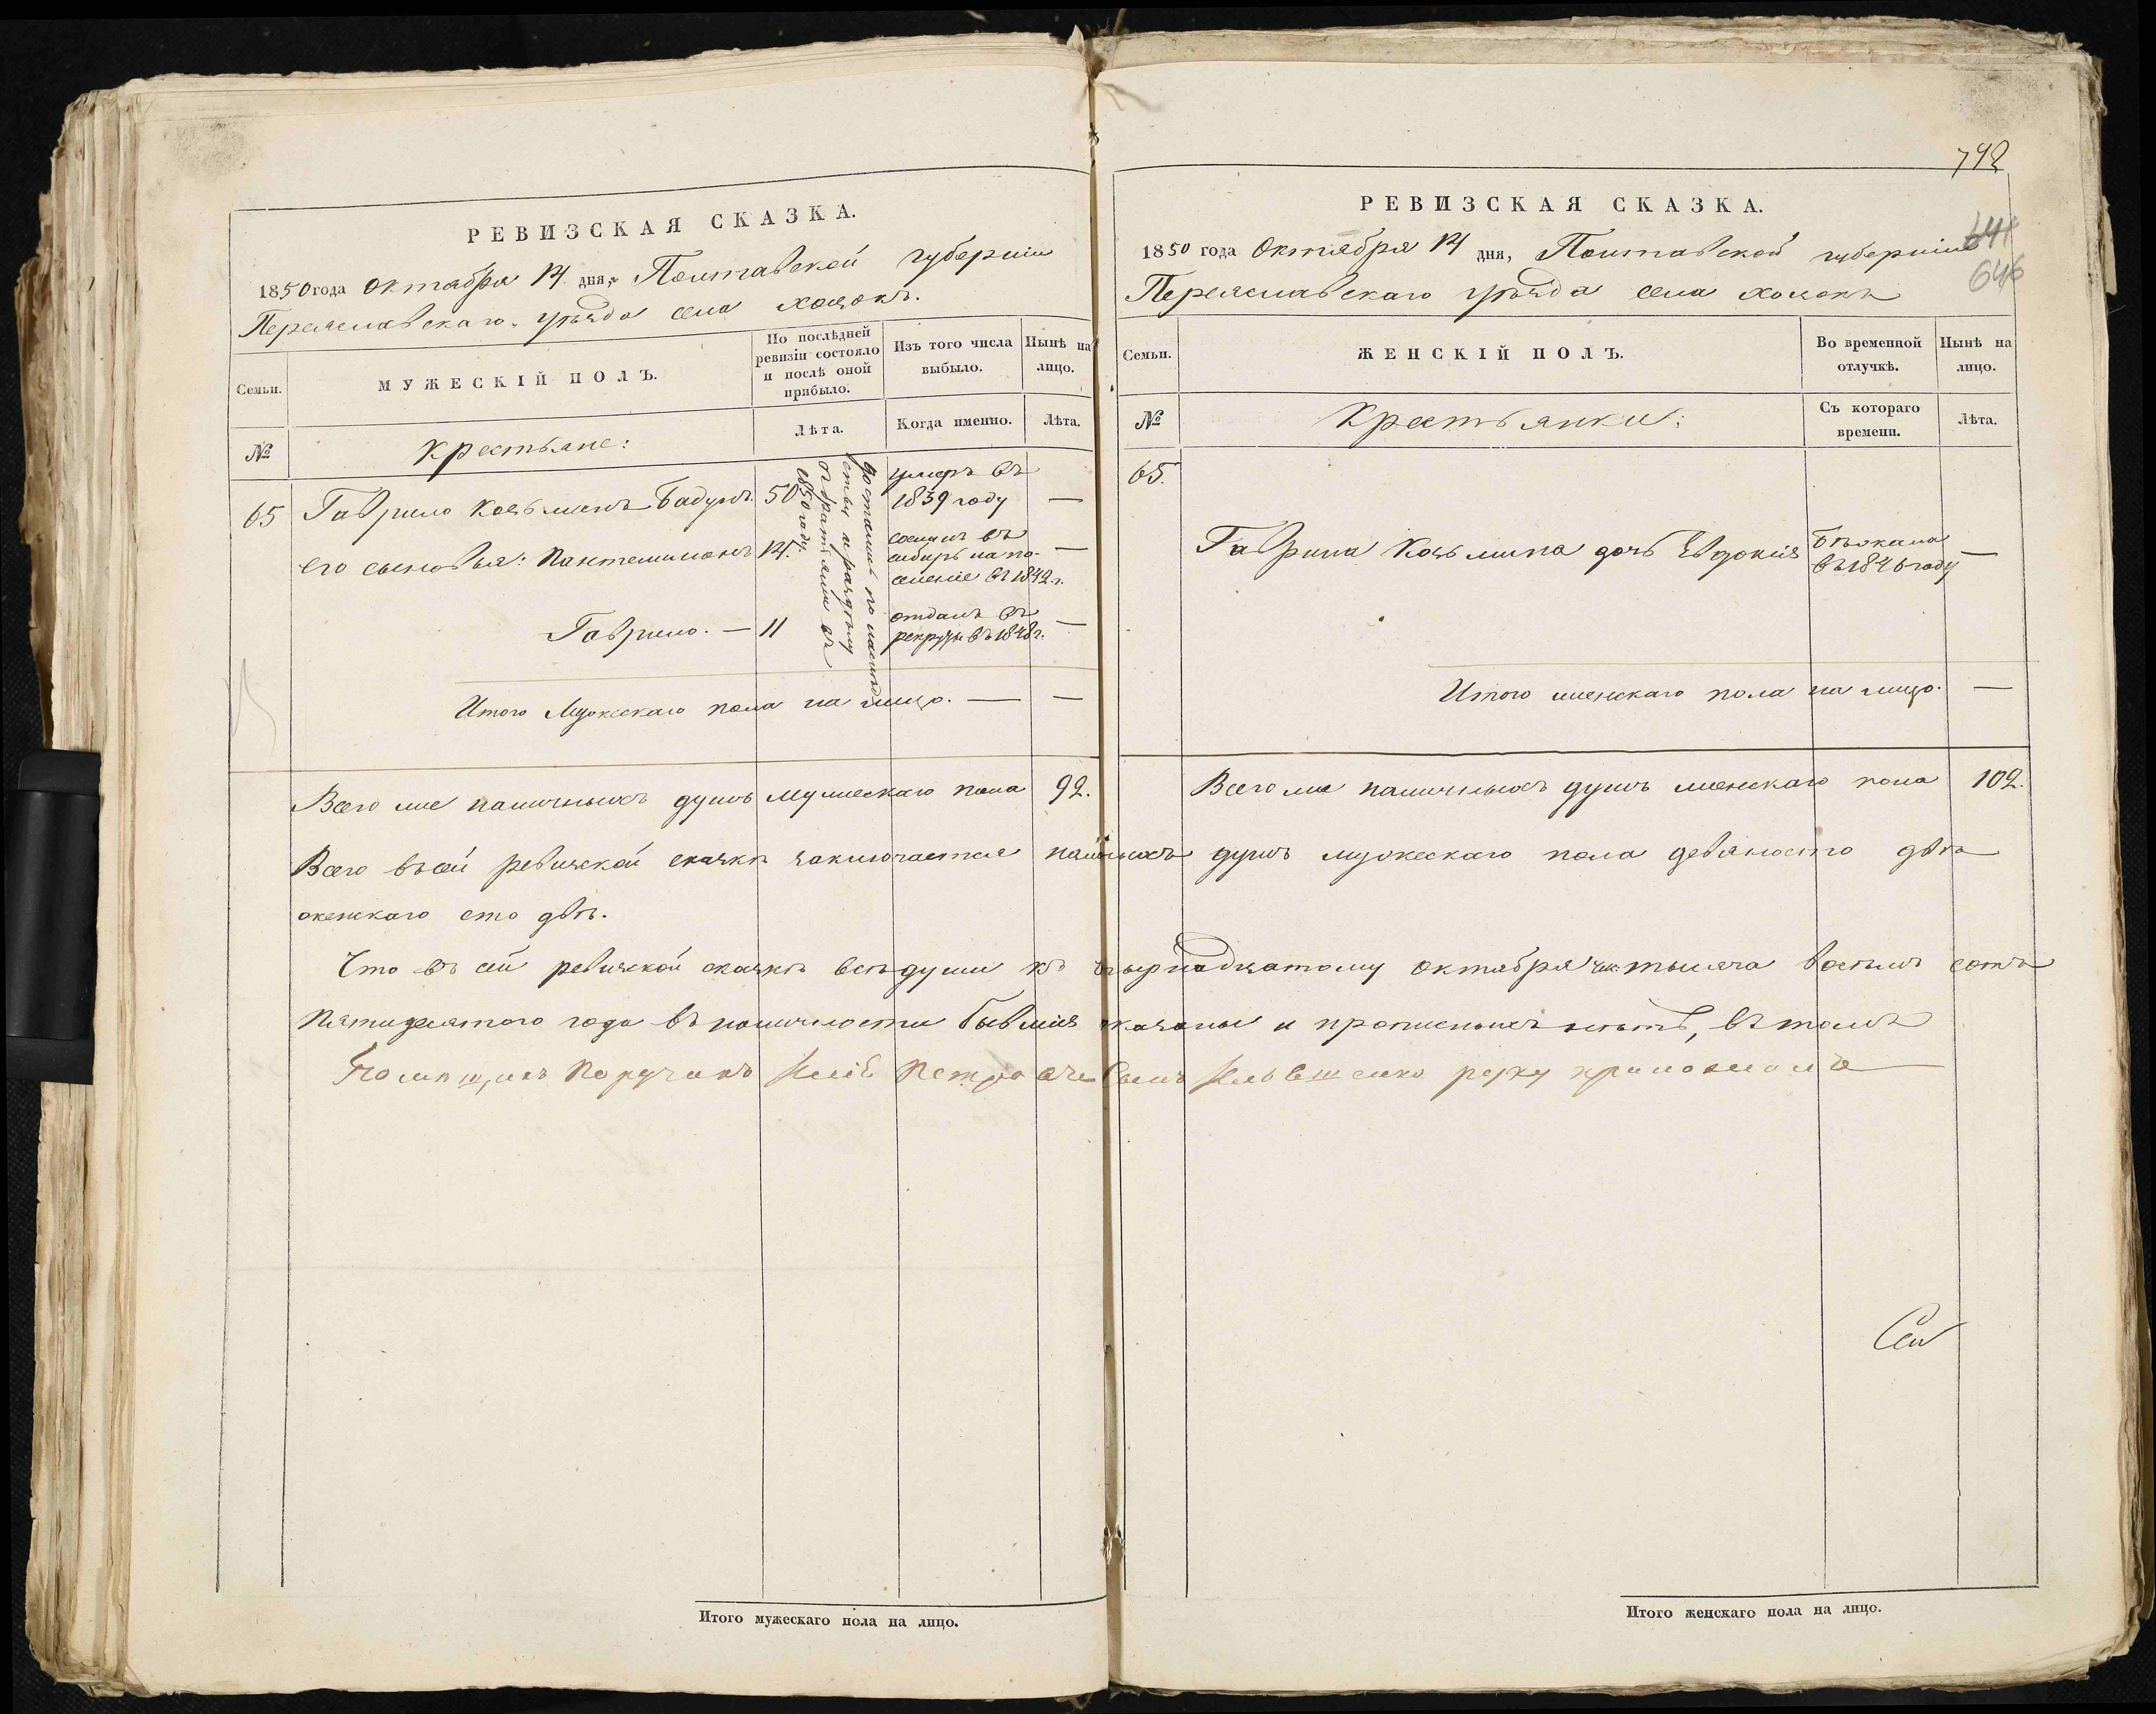 РЕВИЗСКАЯ СКАЗКА.
1850 года Октября 14 дня, Полтавской губерніи
Переяславскаго уѣзда села Хоцокъ.
Семьи.
МУЖЕСКІЙ ПОЛЪ.
По послѣдней ревизіи состояло и послѣ оной прибыло.
Изъ того числа выбыло.
Нынѣ на лицо.
№
Крестьяне:
Лѣта.
Когда именно.
Лѣта.
65 Гаврило Козьминъ Бадунъ. 50 умеръ въ
1839 году —
его сыновья: Пантелимонъ 14. сосланъ въ
сибирь на по-
селеніе въ 1842 г. —
Гаврило. — 11 отданъ въ
рекруты въ 1848 г. —
достались по наслѣд
ству и раздѣлу
съ братьями въ
1850 году.
Итого Мужескаго пола на лицо. — —
Всего же наличныхъ душъ мужескаго пола 92.
792
РЕВИЗСКАЯ СКАЗКА.
641
646
1850 года Октября 14 дня, Полтавской губерніи
Переяславскаго уѣзда села Хоцокъ
Семьи.
ЖЕНСКІЙ ПОЛЪ.
Во временной отлучкѣ.
Нынѣ на лицо.
№
Крестьянки:
Съ котораго времени.
Лѣта.
65.
Гаврила Козьмина дочь Евдокія бѣжала
въ 1846 году —
Итого женскаго пола на лицо. —
Всего же наличныхъ душъ женскаго пола 102.
Всего въ сей ревизской сказкѣ заключается наличныхъ душъ мужескаго пола девяносто два
женскаго сто двѣ.
Что въ сей ревизской сказкѣ всѣ души къ четырнадцатому октября тысяча восемь сотъ
пятидесятого года въ наличности бывшія показаны и прописныхъ нѣтъ, въ томъ
Помѣщикъ Поручикъ Петровъ Сынъ руку приложилъ
Итого мужескаго пола на лицо.
Итого женскаго пола на лицо.